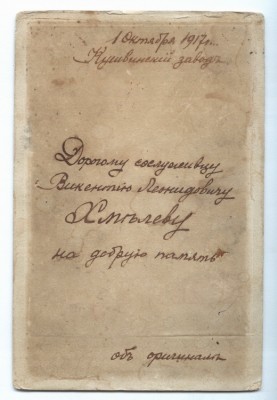 1 Октября 1917 г.
Кушвинскій заводъ
Дорогому сослуживцу
Викентію Леонидовичу
Хмѣлеву
на добрую память
объ оригиналѣ